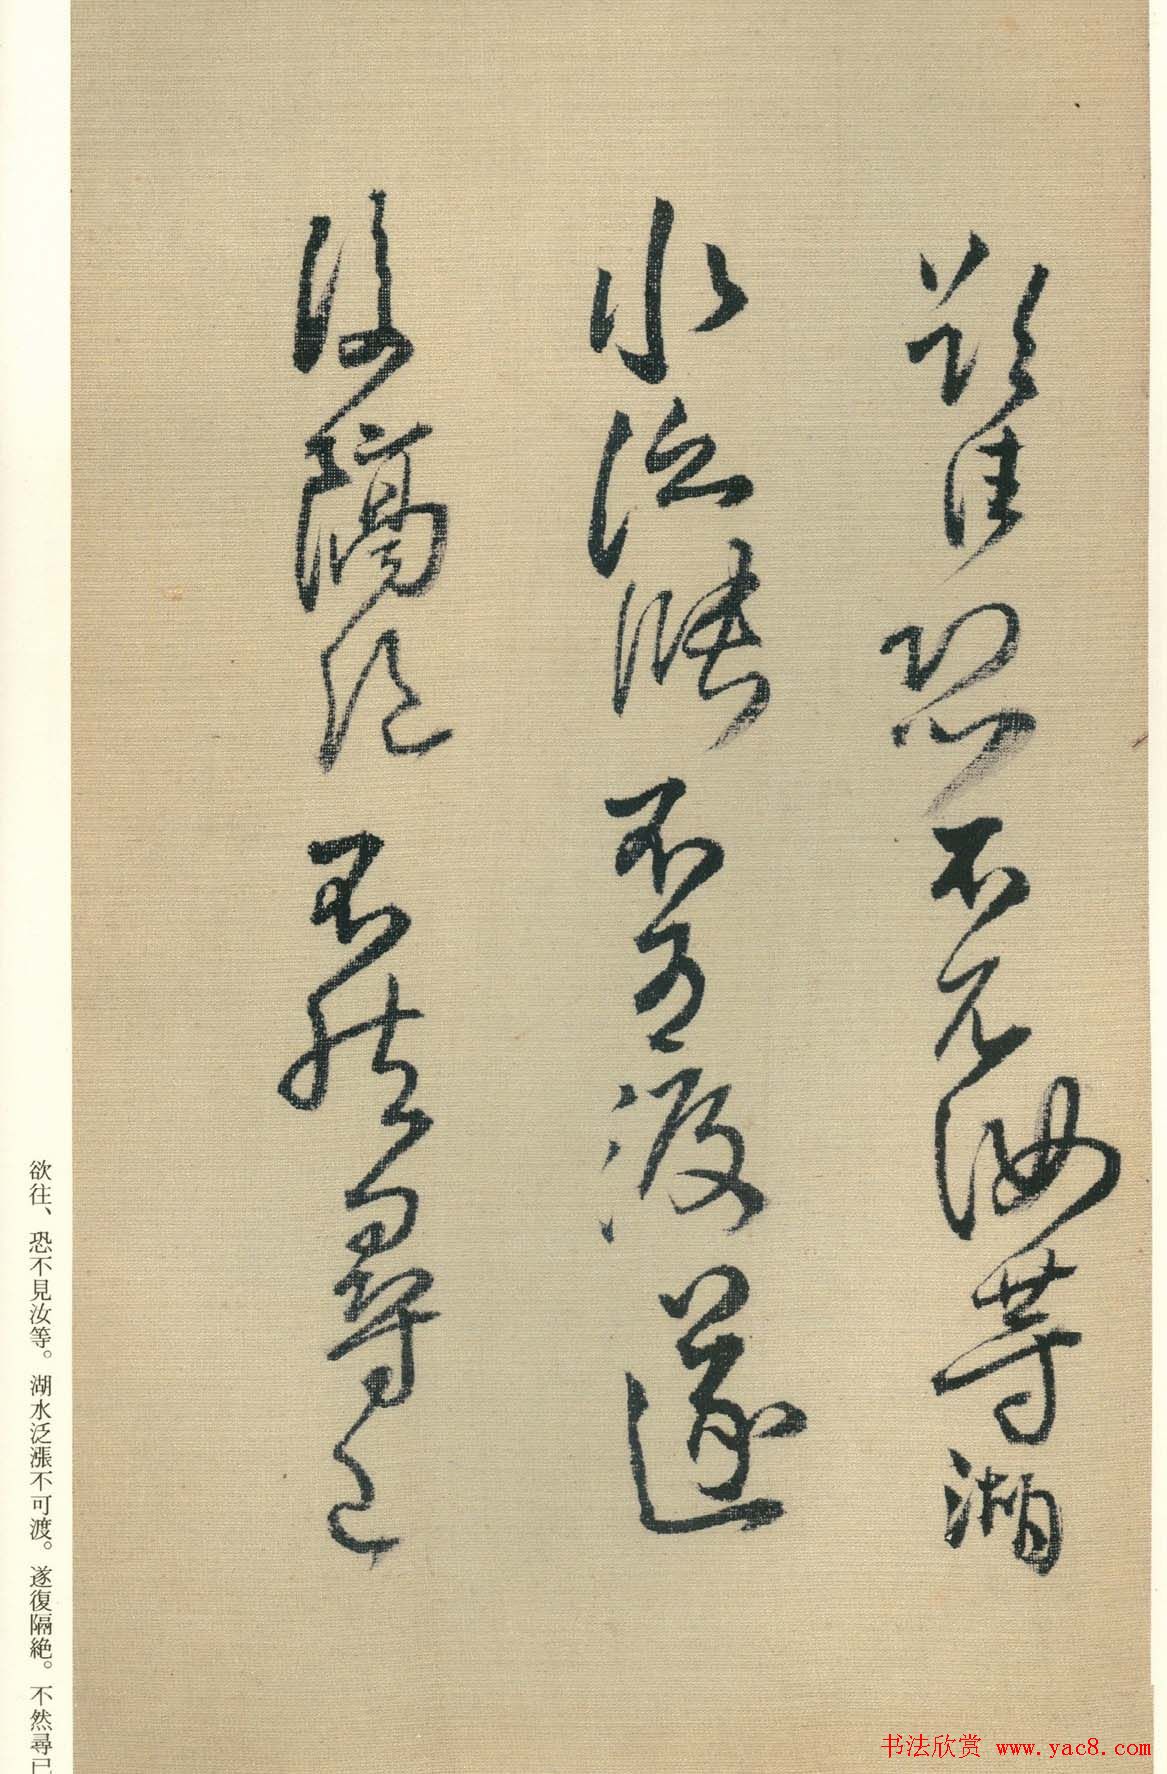 欲往恐不見汝等湖
水泛漲不可渡遂
復隔絕不然尋已
欲往、恐不見汝等。湖水泛漲不可渡。遂復隔絕。不然尋已
书法欣赏 www.yac8.com